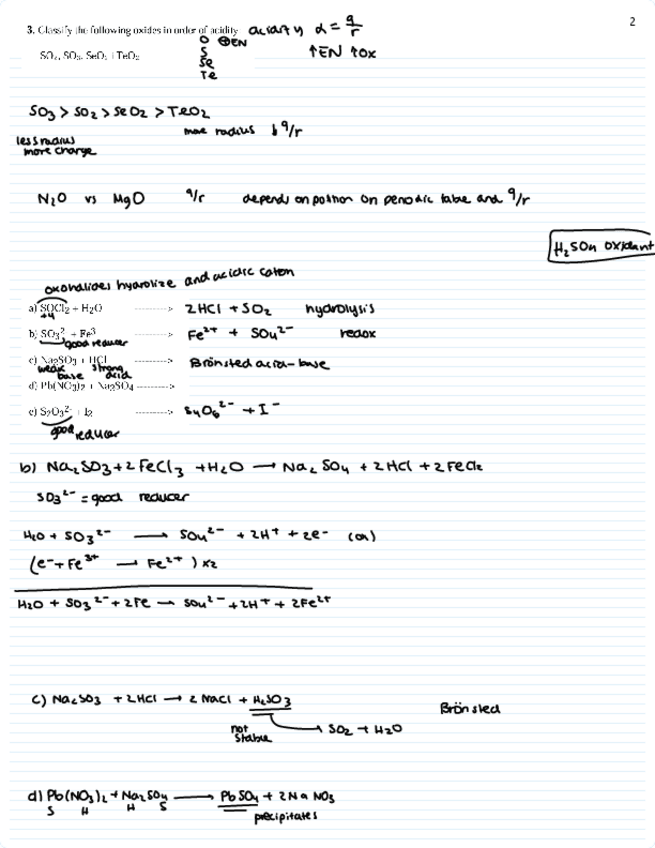 2
3. Classify the following oxides in order of acidity acidity α = q/r
SO₂, SO₃, SeO₂ i TeO₂
O
S
Se
Te
⊕EN
↑EN ↑ox
SO3 > SO2 > SeO2 > TeO2
less radius
more charge
more radius ↓ q/r
N2O vs MgO q/r depends on position on periodic table and q/r
H2SO4 oxidant
oxohalides hydrolize and acidic cation
a) SOCl₂ + H₂O --------> 2HCl + SO2 hydrolysis
+4
b) SO₃²⁻ + Fe³ --------> Fe²⁺ + SO4²⁻ redox
good reducer
c) Na₂SO₃ + HCl --------> Brönsted acid-base
weak base strong acid
d) Pb(NO₃)₂ + Na₂SO₄ -------->
e) S₂O₃²⁻ + I₂ --------> S4O6²⁻ + I⁻
good reducer
b) Na2SO3 + 2FeCl3 + H2O → Na2SO4 + 2HCl + 2FeCl2
SO3²⁻ = good reducer
H2O + SO3²⁻ → SO4²⁻ + 2H⁺ + 2e⁻ (ox)
(e⁻ + Fe³⁺ → Fe²⁺) x2
H2O + SO3²⁻ + 2Fe → SO4²⁻ + 2H⁺ + 2Fe²⁺
c) Na2SO3 + 2HCl → 2NaCl + H2SO3 Brönsted
not stable → SO2 + H2O
d) Pb(NO3)2 + Na2SO4 → PbSO4 + 2NaNO3
S H H S precipitates